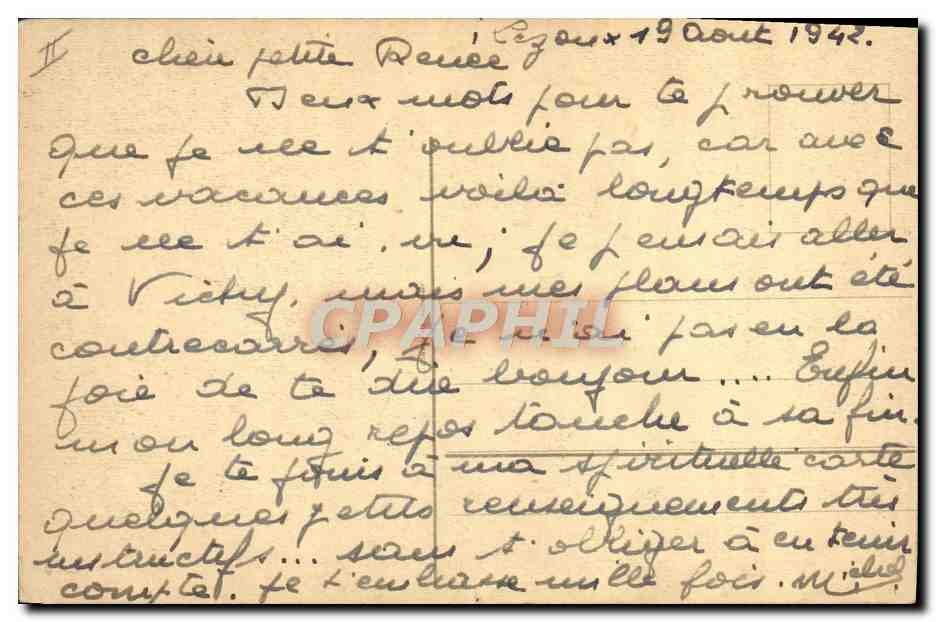 II Lezoux 19 Aout 1942.
Chère petite Renée
Deux mots pour te prouver
que je ne t'oublie pas, car avec
ces vacances voilà longtemps que
je ne t'ai vu; je pensais aller
à Vichy, mais mes plans ont été
CPAPHIL
contrecarrés, je n'ai pas eu la
joie de te dire bonjour.... Enfin
mon long repos touche à sa fin.
Je te joins à ma spirituelle carte
quelques petits renseignements très
instructifs... sans t'obliger à en tenir
compte. Je t'embrasse mille fois. Michel